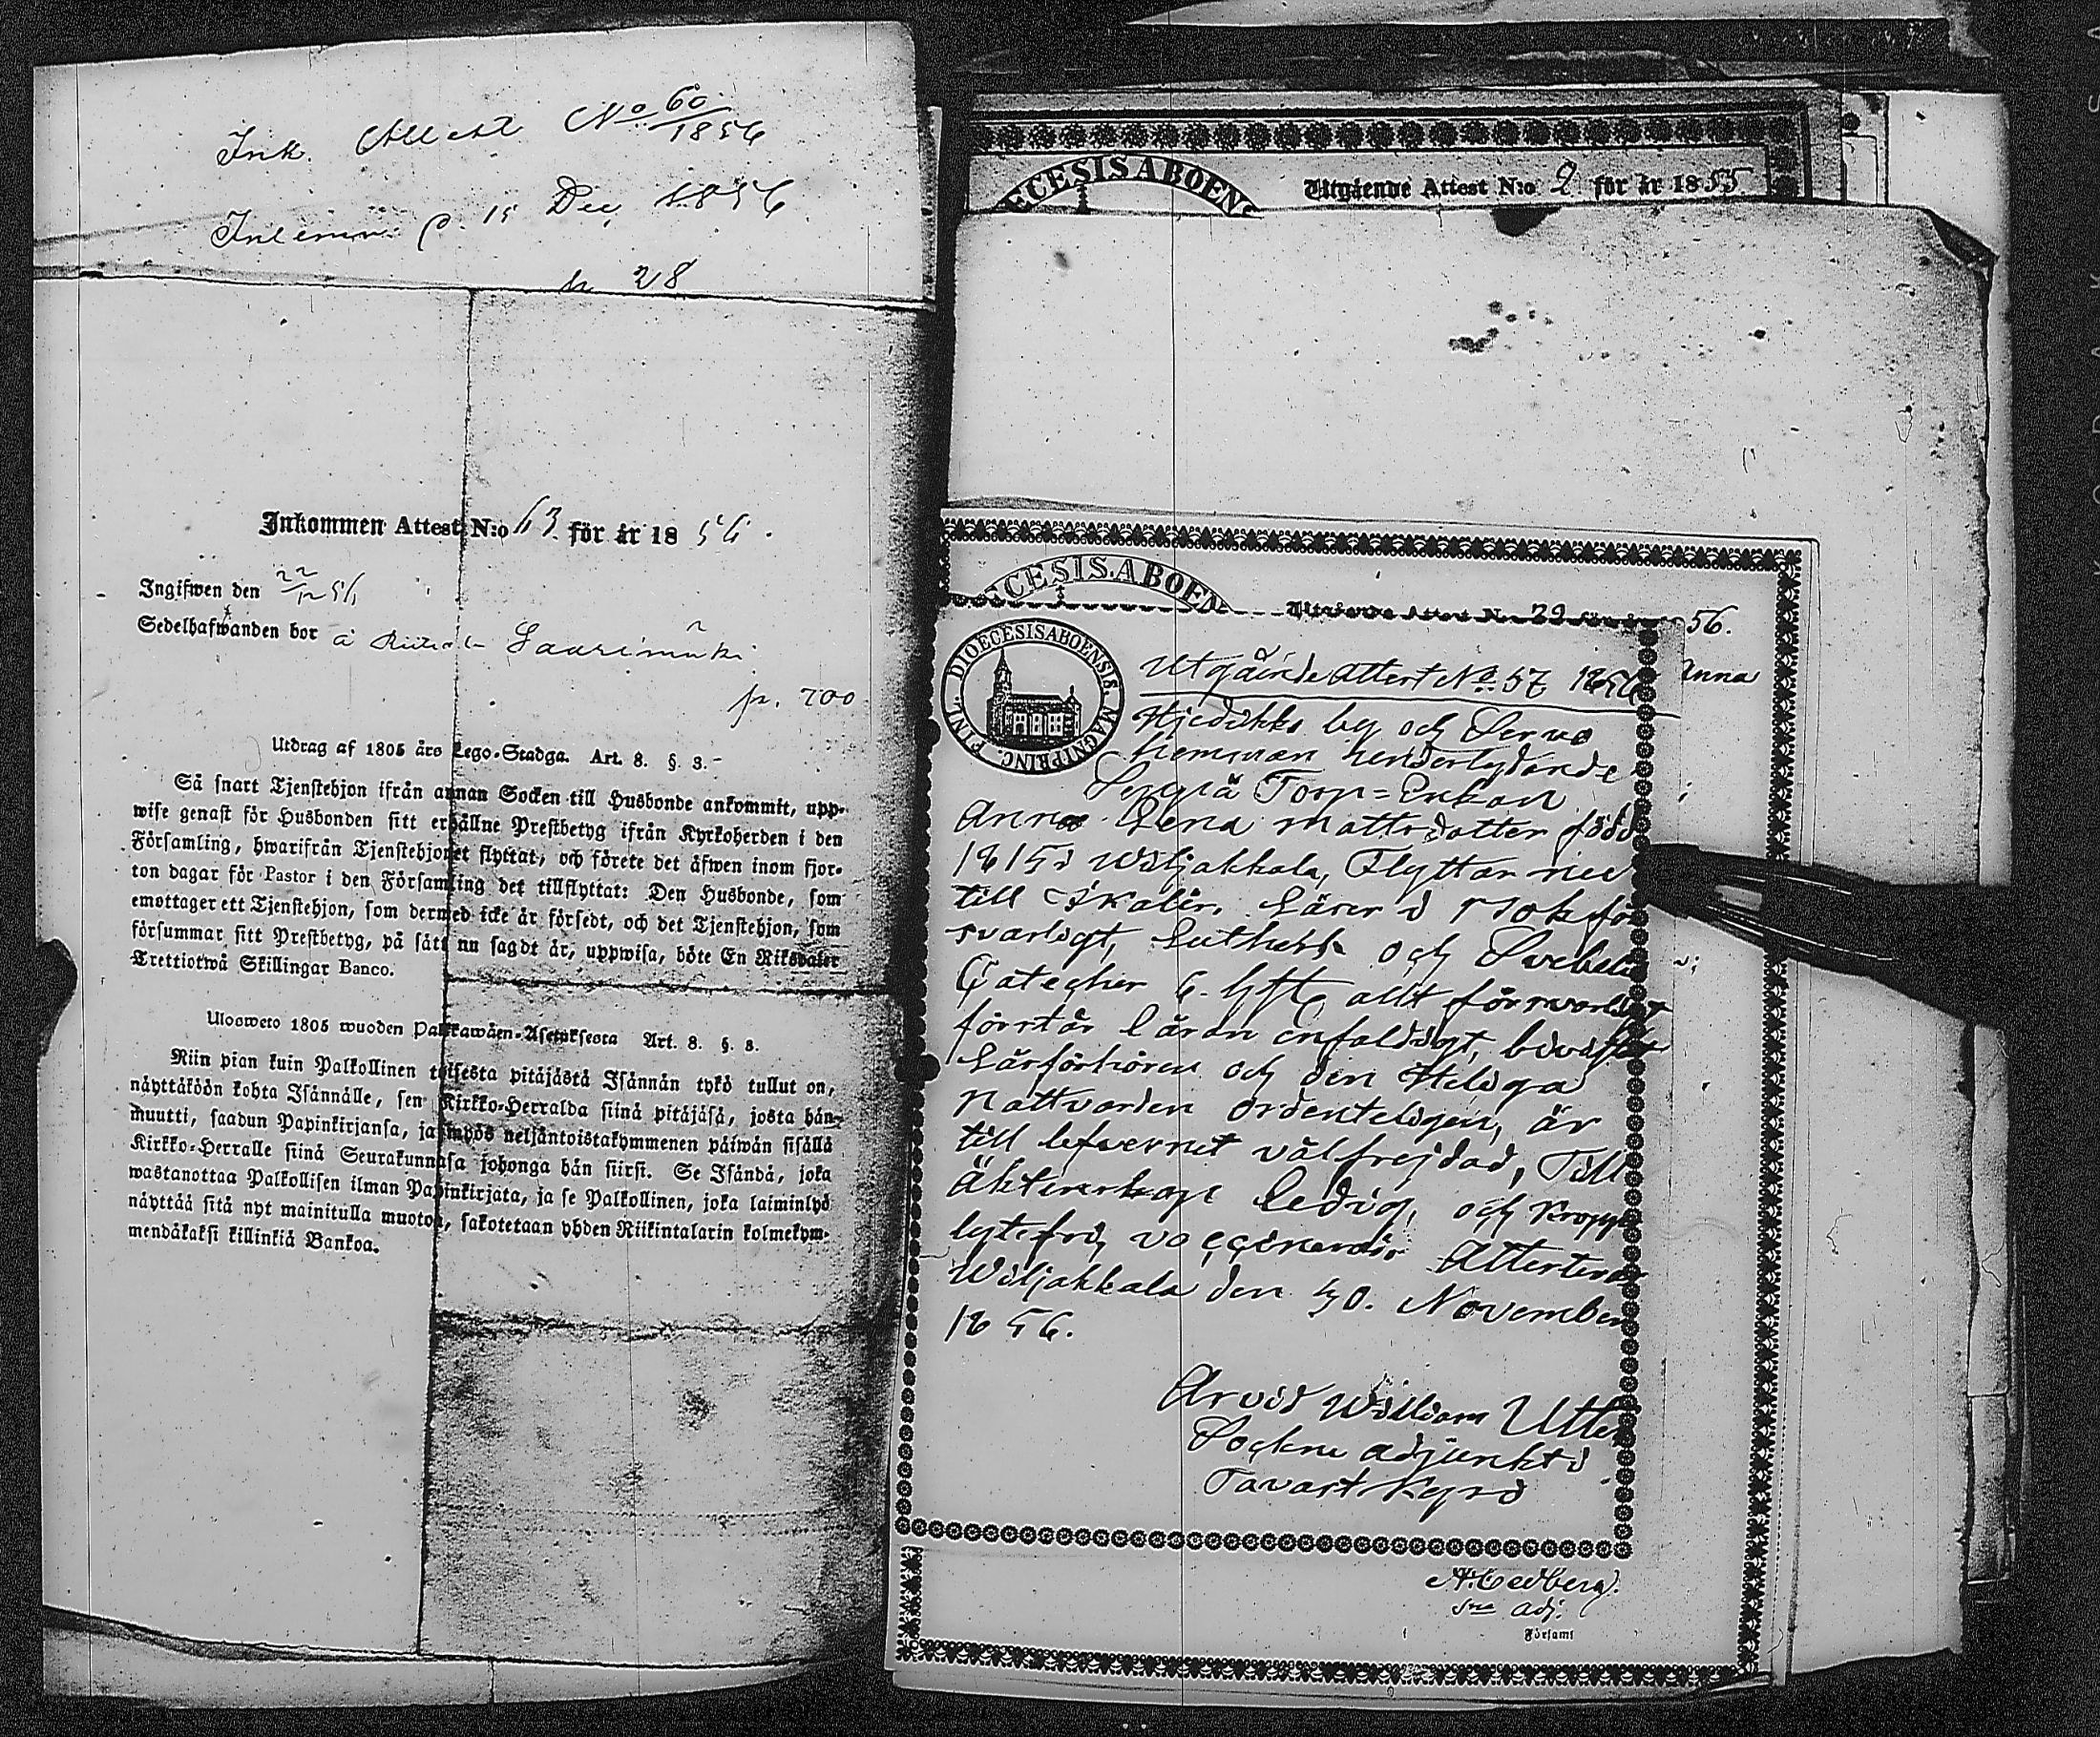 Ink. Attest No 60/1856
Inlemn. d. 15 Dec 1856
28
Inkommen Attest N:o 63 för år 1856.
Ingifwen den 22/12 56
Sedelhafwanden bor å Saarimäki
p. 700
Utdrag af 1805 års Lego-Stadga. Art. 8. §. 3.
Så snart Tjenstehjon ifrån annan Socken till Husbonde ankommit, upp-
wise genast för Husbonden sitt erhållne Prestbetyg ifrån Kyrkoherden i den
Församling, hwarifrån Tjenstehjonet flyttat, och förete det äfwen inom fjor-
ton dagar för Pastor i den Församling det tillflyttat: Den Husbonde, som
emottager ett Tjenstehjon, som dermed icke är försedt, och det Tjenstehjon, som
försummar sitt Prestbetyg, på sätt nu sagdt är, uppwisa, böte En Riksdaler
Trettiotwå Skillingar Banco.
Ulosweto 1805 wuoden Palkkawäen-Asetuksesta Art. 8. §. 3.
Niin pian kuin Palkollinen toisesta pitäjästä Isännän tykö tullut on,
näyttäköön kohta Isännälle, sen Kirkko-Herralda siinä pitäjäsä, josta hän
muutti, saadun Papinkirjansa, ja myös neljäntoistakymmenen päiwän sisällä
Kirkko-Herralle siinä Seurakunnasa johonga hän siirsi. Se Isändä, joka
wastanottaa Palkollisen ilman Papinkirjata, ja se Palkollinen, joka laiminlyö
näyttää sitä nyt mainitulla muotoa, sakotetaan yhden Riikintalarin kolmekym-
mendäkaksi killinkiä Bankoa.
ECESIS ABOENS
Utgående Attest N:o 2 för år 1855
CESIS. ABOEN
Utgående Attest N:o 29 för år 56.
Anna
DIOECESIS ABOENSIS. MAGNI PRINC. FINL.
Utgående Attest No 57 1856
by och Servo
hemman underlydande
Torp=Enkan
Anna Lena Mattsdotter född
1815 i Wiljakkala, Flyttar nu
till Ikalis. Läser i bok för
svarligt, Luth: och Svebelii
Catecher G. allt försvarligt
förstår läran enfaldigt, bivistat
Läsförhören och den Heliga
Nattvarden ordenteligen, är
till lefvernet välfrejdad, Till
äktenskap ledig, och kropps
lytefri, vaccinerad. Attesterar
Wiljakkala den 30. November
1856.
Arvid William Utter
Sockne adjunkt i
Tavastkyrö
A. Cedberg.
Sne Adj.
Församl